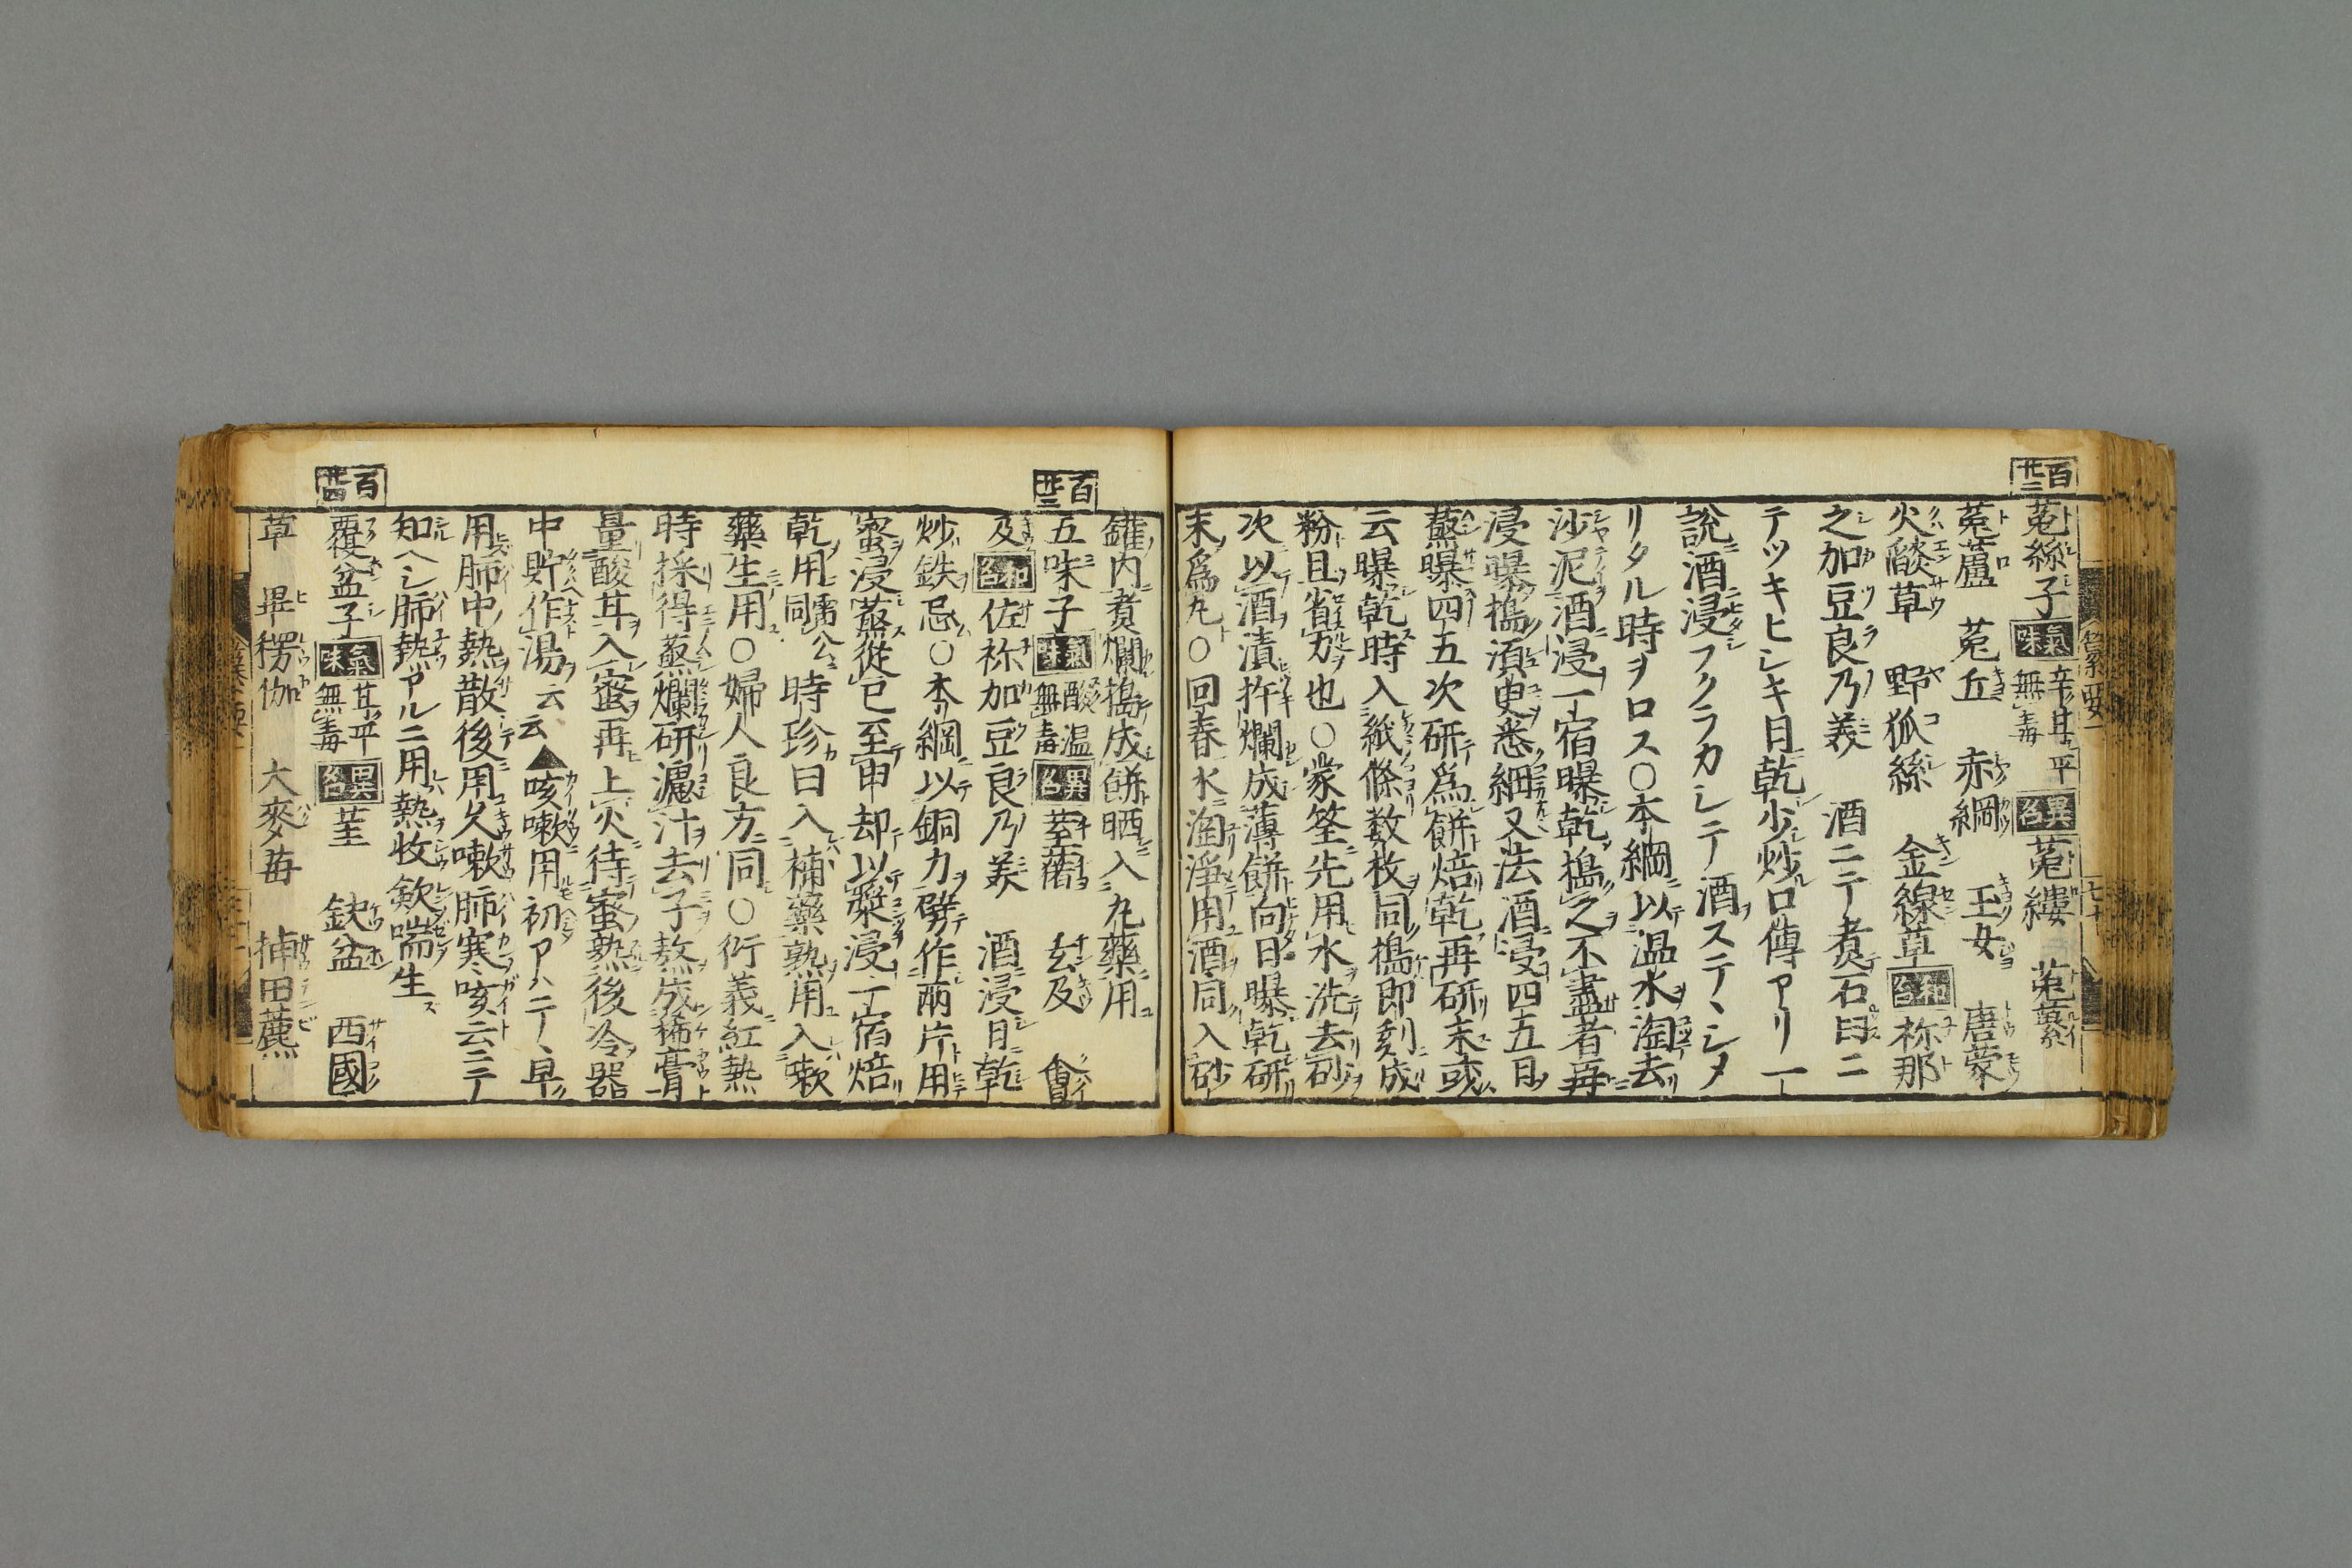 百廿二
菟絲子 氣味 辛甘平無毒 異名 菟縷 菟纍
菟蘆 菟丘 赤綱 玉女 唐蒙
火燄草 野狐絲 金線草 和名 祢那
之加豆良乃美 酒ニテ煮石臼ニ
テツキヒシキ日乾少炒口傳アリ一
說酒浸フクラカシテ酒ステヽシメ
リタル時ヲロス○本綱以温水淘去
沙泥酒浸一宿曝乾搗之不盡者再
浸曝搗須臾悉細又法酒浸四五日
蒸曝四五次研爲餅焙乾再研末或
云曝乾時入紙條数枚同搗即刻成
粉且省力也○蒙筌先用水洗去砂
次以酒漬杵爛成薄餅向日曝乾研
末爲丸○回春水淘淨用酒同入砂
鑵内煮爛搗成餅晒入丸藥用
百廿三
五味子 氣味 酸温無毒 異名 荎蕏 玄及 會
及 和名 佐祢加豆良乃美 酒浸日乾
炒鉄忌○本綱以銅刀劈作兩片用
蜜浸蒸從巳至申却以漿浸一宿焙
乾用同雷公 時珍曰入補藥熟用入嗽
藥生用○婦人良方同○衍義紅熟
時採得蒸爛研濾汁去子熬成稀膏
量酸甘入蜜再上火待蜜熟後冷器
中貯作湯云云▲咳嗽用初アハニテ早
用肺中熱散後用久嗽肺寒咳云ニテ
知ヘシ肺熱アルニ用熱收欬喘生
百廿四
覆盆子 氣味 甘平無毒 異名 堇 缺盆 西國
草 畢楞伽 大麥苺 挿田藨